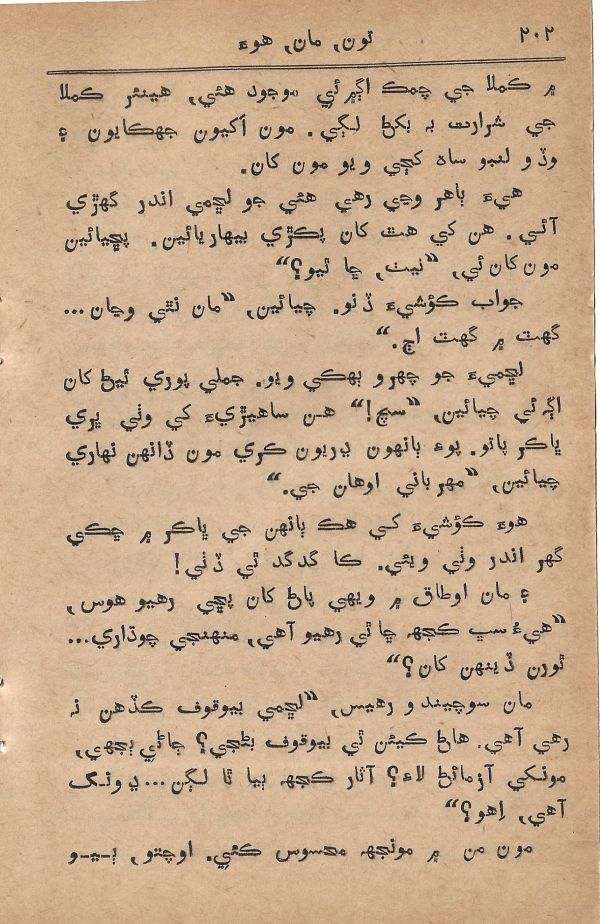 تون، مان، هوءَ ٢٠٢
۾ ڪملا جي چمڪ اڳ ۾ ئي موجود هئي، هينئر ڪملا
جي شرارت بہ بکڻ لڳي. مون اکيون جهڪايون ۽
وڏو لنبو ساہ کڄي ويو مون کان.
هيءَ ٻاهر وڃي رهي هئي جو لڇمي اندر گهڙي
آئي. هن کي هٿ کان پڪڙي بيهاريائين. پڇيائين
مون کان ئي، ”نيٺ، ڇا ٿيو؟“
جواب ڪؤشيءَ ڏنو. چيائين، ”مان نٿي وڃان...
گهٽ ۾ گهٽ اڄ.“
لڇميءَ جو چهرو ٻهڪي ويو. جملي پوري ٿيڻ کان
اڳہ ئي چيائين، ”سچ!“ هن ساهيڙيءَ کي وٺي ڀري
ڀاڪر پاتو. پوءِ ٻانهون ڍريون ڪري مون ڏانهن نهاري
چيائين، ”مهرباني اوهان جي.“
هوءَ ڪؤشيءَ کي هڪ ٻانهن جي ڀاڪر ۾ ڇڪي
گهر اندر وٺي ويئي. ڪا گدگد ئي ڏٺي!
۽ مان اوطاق ۾ ويهي پاڻ کان پڇي رهيو هوس،
”هيءُ سڀ ڪجهہ ڇا ٿي رهيو آهي، منهنجي چوڌاري...
ٿورن ڏينهن کان؟“
مان سوچيندو رهيس، ”لڇمي بيوقوف ڪڏهن نہ
رهي آهي. هاڻ ڪيئن ٿي بيوقوف بڻجي؟ ڄاڻي ٻجهي،
مونکي آزمائڻ لاءِ؟ آثار ڪجهہ ٻيا ٿا لڳن... ڍونگ
آهي، اِهو؟“
مون من ۾ مونجهہ محسوس ڪئي. اوچتو، ٻ-ي-و